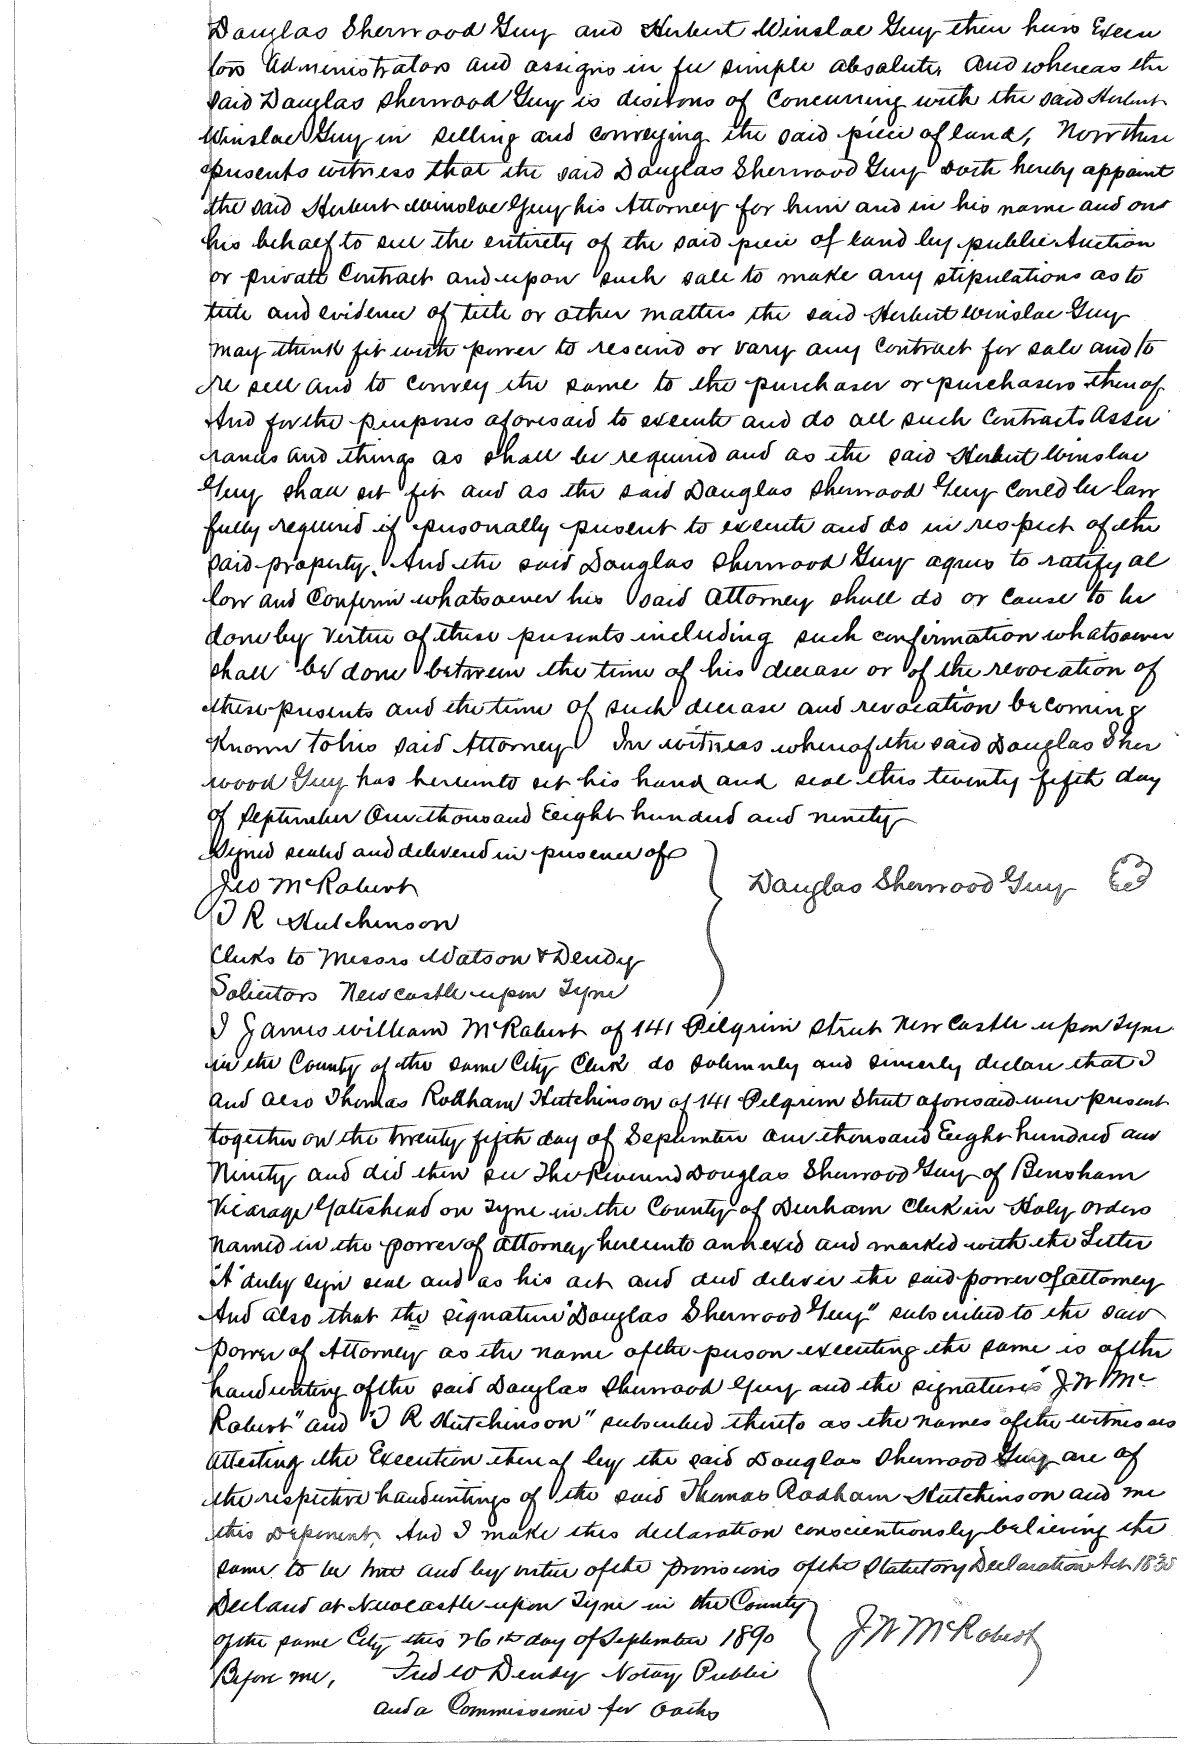 Douglas Sherwood Guy and Herbert Winsloe Guy their heirs Execu
tors Administrators and assigns in fee simple absolute, And whereas the
said Douglas Sherwood Guy is desirous of concurring with the said Herbert
Winsloe Guy in selling and conveying the said piece of land, Now these
presents witness that the said Douglas Sherwood Guy doth hereby appoint
the said Herbert Winsloe Guy his Attorney for him and in his name and on
his behalf to sell the entirety of the said piece of land by public Auction
or private Contract and upon such sale to make any stipulations as to
title and evidence of title or other matters the said Herbert Winsloe Guy
may think fit with power to rescind or vary any Contract for sale and to
re sell and to convey the same to the purchaser or purchasers thereof
And for the purposes aforesaid to execute and do all such Contracts Assu
rances and things as shall be required and as the said Herbert Winsloe
Guy shall see fit and as the said Douglas Sherwood Guy could be law
fully required if personally present to execute and do in respect of the
said property. And the said Douglas Sherwood Guy agrees to ratify al
low and Confirm whatsoever his said Attorney shall do or cause to be
done by virtue of these presents including such confirmation whatsoever
shall be done between the time of his decease or of the revocation of
these presents and the time of such decease and revocation becoming
known to his said Attorney In witness whereof the said Douglas Sher
wood Guy has hereunto set his hand and seal this twenty fifth day
of September One thousand Eight hundred and ninety
Signed sealed and delivered in presence of
Jas McRobert
T R Hutchinson
Clerks to Messrs Watson & Dendy
Solicitors Newcastle upon Tyne
Douglas Sherwood Guy
I James William McRobert of 141 Pilgrim Street Newcastle upon Tyne
in the County of the same City Clerk do solemnly and sincerely declare that I
and also Thomas Rodham Hutchinson of 141 Pilgrim Street aforesaid were present
together on the twenty fifth day of September one thousand Eight hundred and
Ninety and did then see The Reverend Douglas Sherwood Guy of Bensham
Vicarage Gateshead on Tyne in the County of Durham Clerk in Holy orders
named in the power of attorney hereunto annexed and marked with the Letter
"A" duly sign seal and as his act and deed deliver the said power of attorney
And also that the signature "Douglas Sherwood Guy" subscribed to the said
Power of Attorney as the name of the person executing the same is of the
handwriting of the said Douglas Sherwood Guy and the signatures "J W Mc
Robert" and "T R Hutchinson" subscribed thereto as the names of the witnesses
attesting the Execution thereof by the said Douglas Sherwood Guy are of
the respective handwritings of the said Thomas Rodham Hutchinson and me
this Deponent, And I make this declaration conscientiously believing the
same to be true and by virtue of the provisions of the Statutory Declaration Act 1835
Declared at Newcastle upon Tyne in the County
of the same City this 26th day of September 1890
Before me, Fred W Dendy Notary Public
and a Commissioner for Oaths
J W McRobert